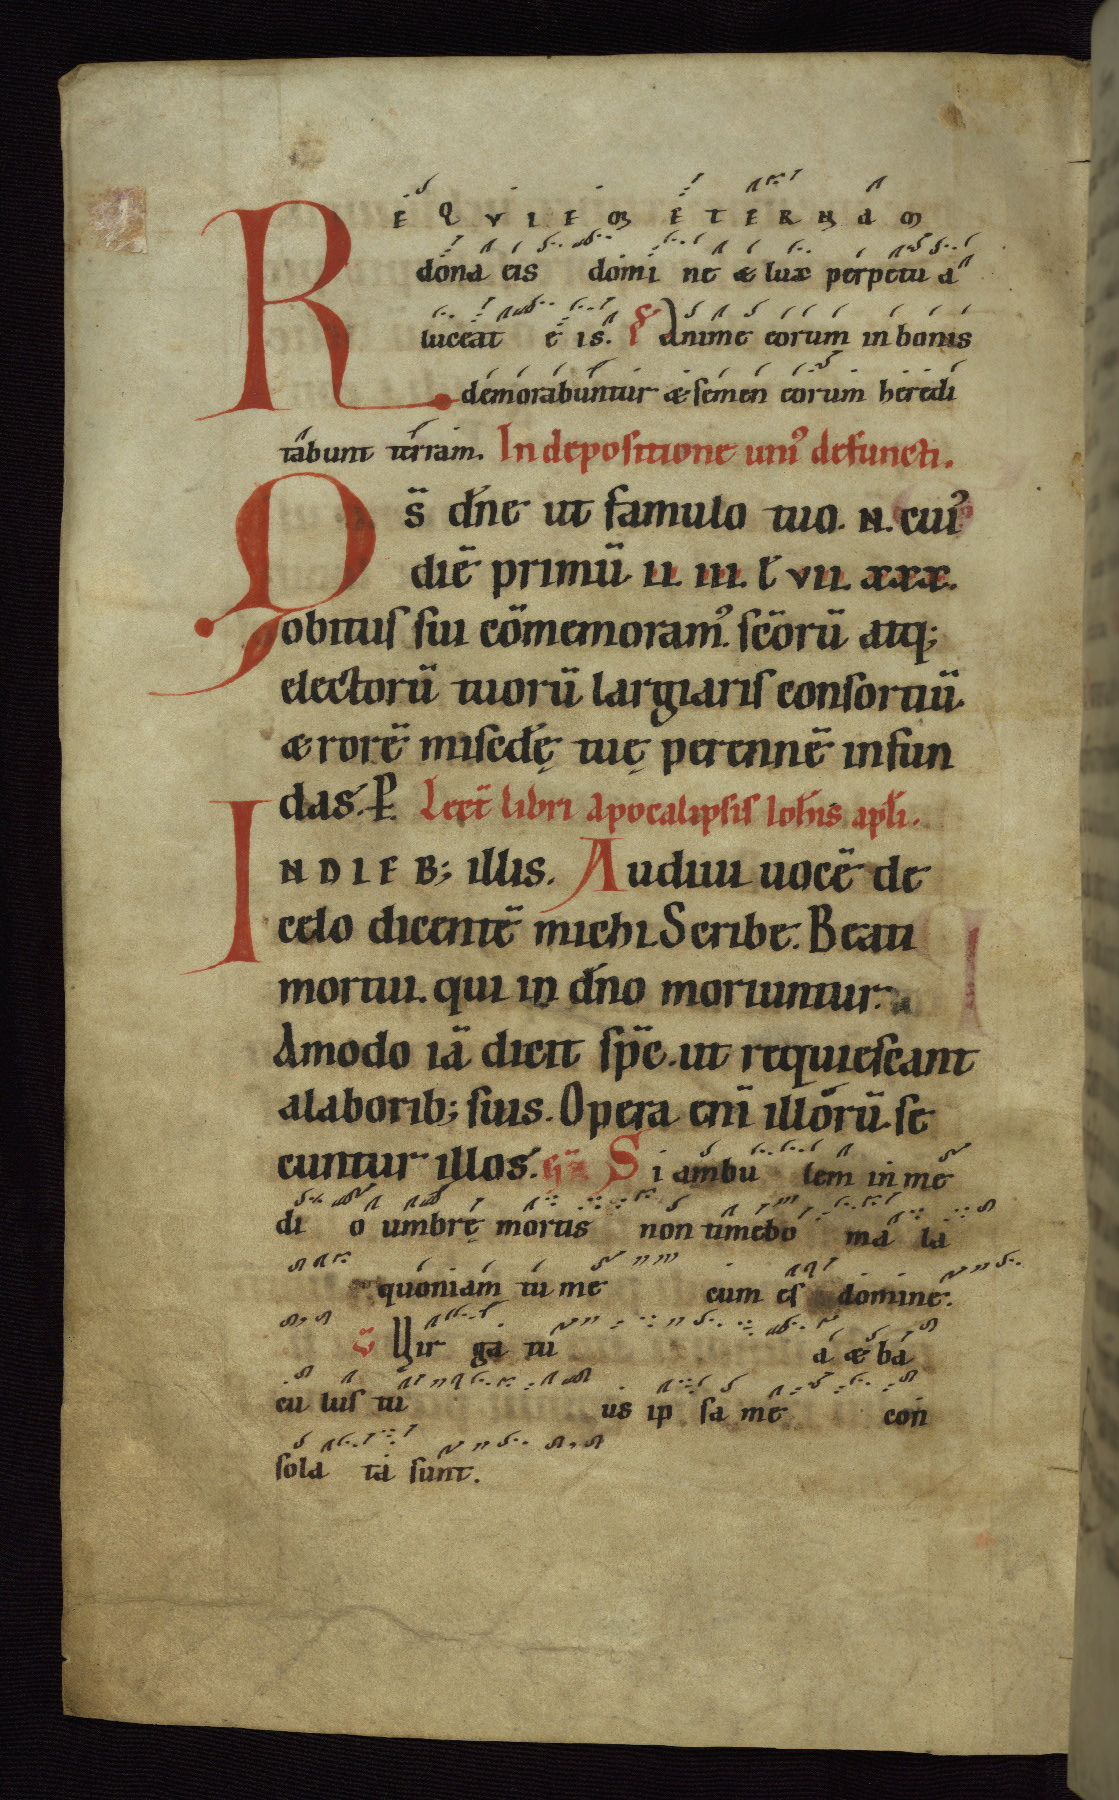 REQVIEM ETERNAM
dona eis domi ne & lux perpetu a
luceat e is. Anime eorum in bonis
demorabuntur & semen eorum heredi
tabunt terram. In depositione uni᾽ defuncti.
Qs̄ dn̄e ut famulo tuo. N. cui᾽
diē primū II. III. l̄ VII. XXX.
obitus sui cōmemoram᾽. sc̄orū atq;
electorū tuorū largiaris consortiū
& rorē misedr̄ę tuę perennē infun
das. P. Lect̄ libri apocalipsis Ioh̄is apl̄i.
IN DIEB; illis. Audiui uocē de
celo dicentē michi Scribe. Beati
mortui. qui in dn̄o moriuntur.
Amodo iā dicit sp̄c. ut requiescant
alaborib; suis. Opera eni̅ illorū. se
cuntur illos. Si ambu lem in me
di o umbrę mortis non timebo ma la
quoniam tu me cum es domine.
Vir ga tu a & ba
cu lus tu us ip sa me con
sola ta sunt.